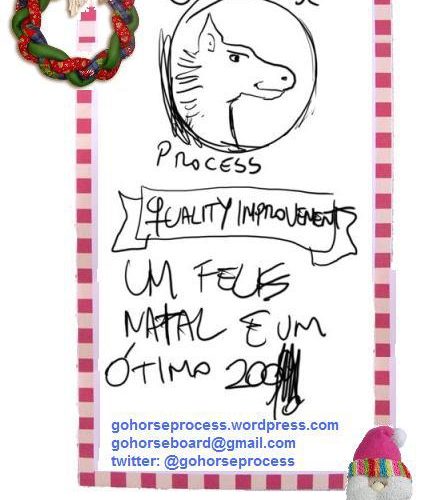 PROCESS
QUALITY IMPROVEMENTS
UM FELIS
NATAL E UM
ÓTIMO 200
gohorseprocess.wordpress.com
gohorseboard@gmail.com
twitter: @gohorseprocess